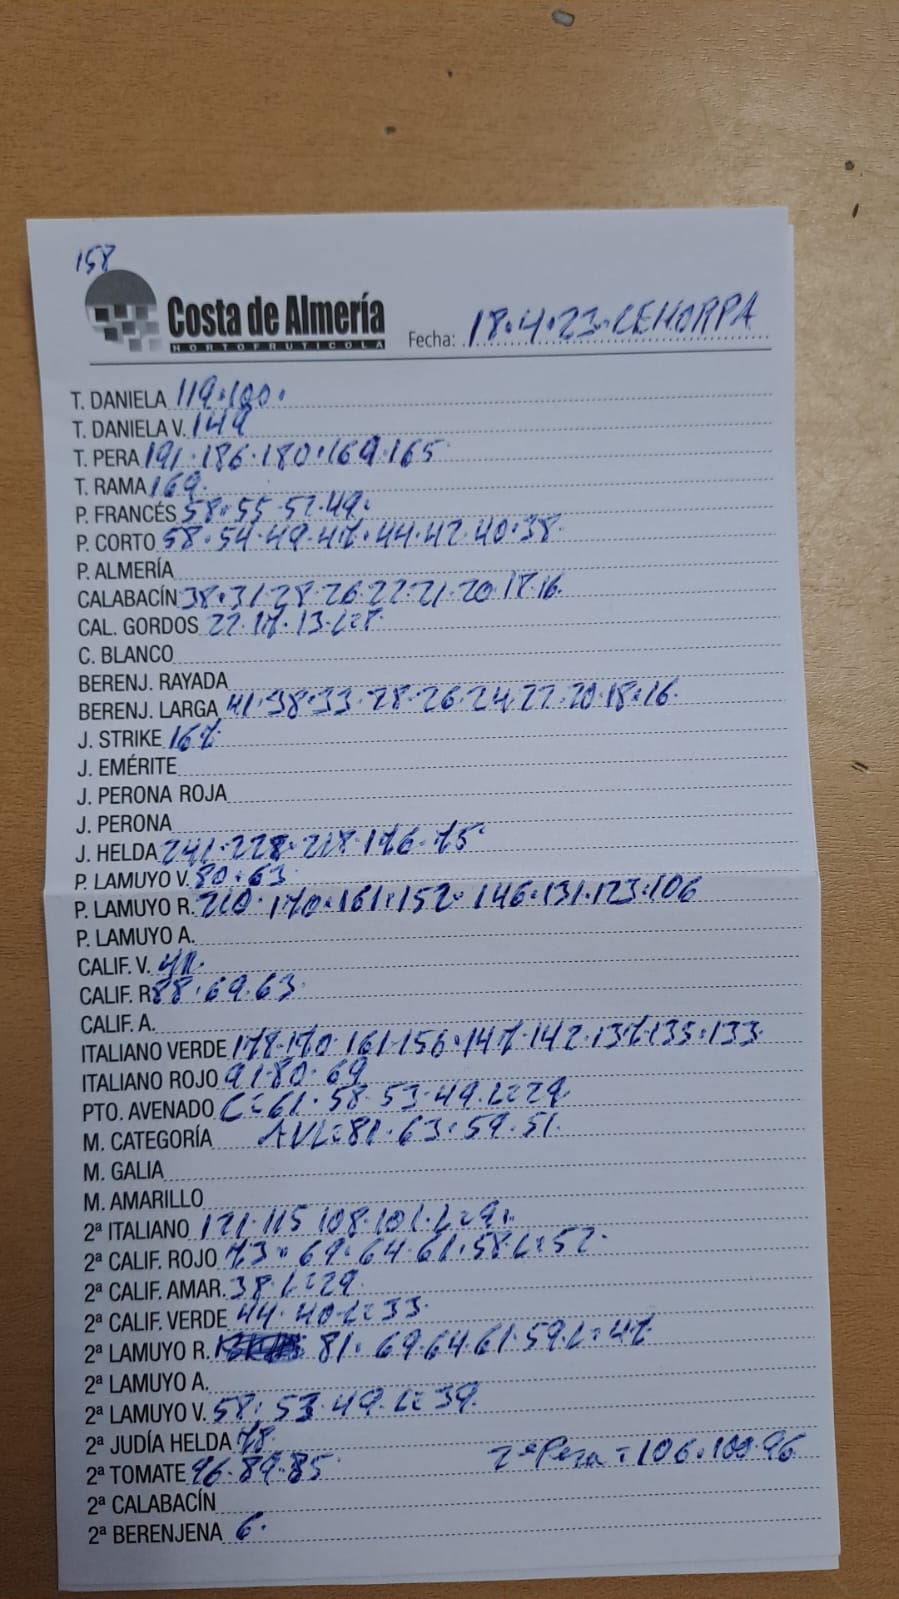 158
Costa de Almería
HORTOFRUTICOLA
Fecha: 18.4.23. CEHORPA
T. DANIELA 119.100.
T. DANIELA V. 149
T. PERA 191.186.180.169.165
T. RAMA 169.
P. FRANCÉS 58.55.52.49.
P. CORTO 58.54.49.47.44.42.40.38
P. ALMERÍA
CALABACÍN 38.31.28.26.22.21.20.18.16.
CAL. GORDOS 22.17.13.L=8.
C. BLANCO
BERENJ. RAYADA
BERENJ. LARGA 41.38.33.28.26.24.22.20.18.16.
J. STRIKE 167.
J. EMÉRITE
J. PERONA ROJA
J. PERONA
J. HELDA 241.228.218.176.75.
P. LAMUYO V. 80.63.
P. LAMUYO R. 210.170.161.152.146.131.123.106
P. LAMUYO A.
CALIF. V.
CALIF. R 88.69.63.
CALIF. A.
ITALIANO VERDE 178.170.161.156.147.142.137.135.133.
ITALIANO ROJO 91.80.69
PTO. AVENADO C=61.58.53.49.L=29.
M. CATEGORÍA AVL=81.63.59.51.
M. GALIA
M. AMARILLO
2ª ITALIANO 121.115.108.101.L=91.
2ª CALIF. ROJO 73.69.64.61.58.L=52.
2ª CALIF. AMAR. 38.L=29.
2ª CALIF. VERDE 44.40.L=33.
2ª LAMUYO R. 81.69.64.61.59.L=47.
2ª LAMUYO A.
2ª LAMUYO V. 58.53.49.L=39.
2ª JUDÍA HELDA 78
2ª TOMATE 96.89.85. 2ª Pera=106.100.96
2ª CALABACÍN
2ª BERENJENA 6.